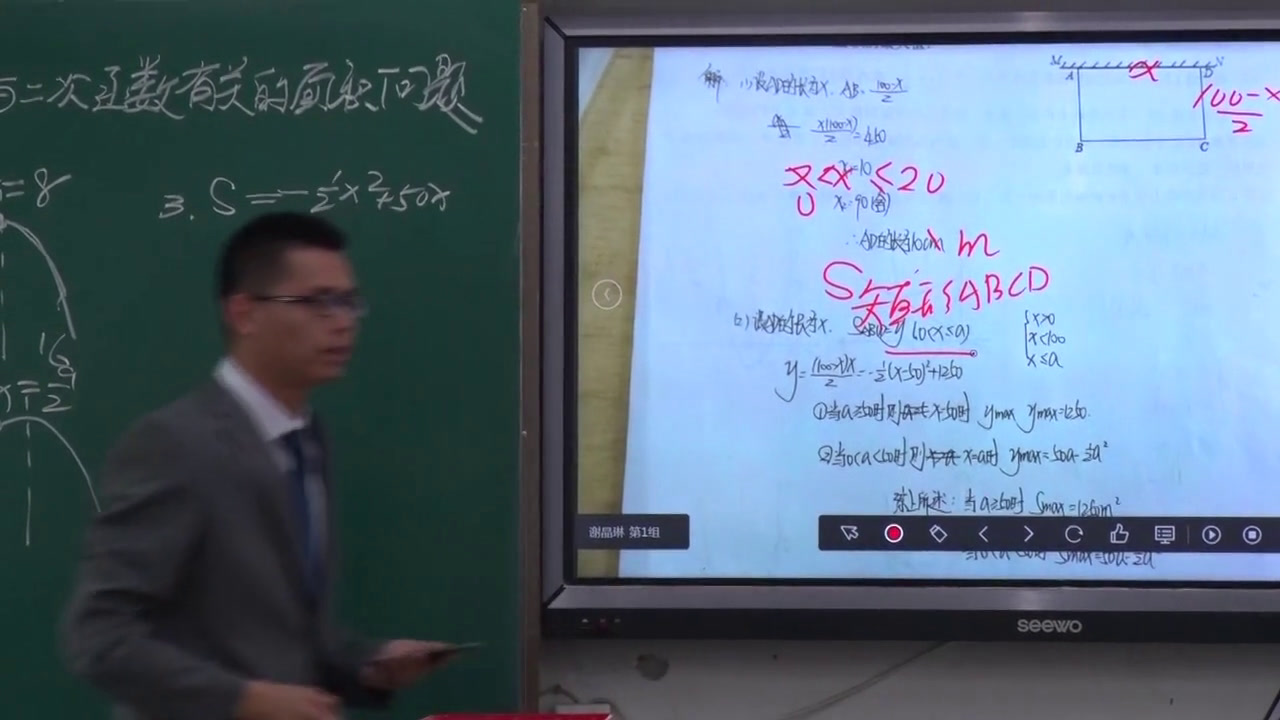 与二次函数有关的面积问题
=8
3. S=-½x²+50x
16
x=9/2
M A x D N
100-x/2
B C
解 (1)设AD的长为x. AB=100-x/2
x(100-x)/2=450
x₁=10
0<x≤20
x₂=90(舍)
∴AD的长为10m
S矩形ABCD
(2)设AD的长为x. SABCD=y (0<x≤a)
{x>0
x<100
x≤a
y=(100-x)x/2=-½(x-50)²+1250
①当a≥50时 则x=50时 ymax ymax=1250.
②当0<a<50时 则x=a时 ymax=50a-½a²
综上所述: 当a≥50时 Smax=1250m²
当0<a<50时 Smax=50a-½a²
谢晶琳 第1组
seewo